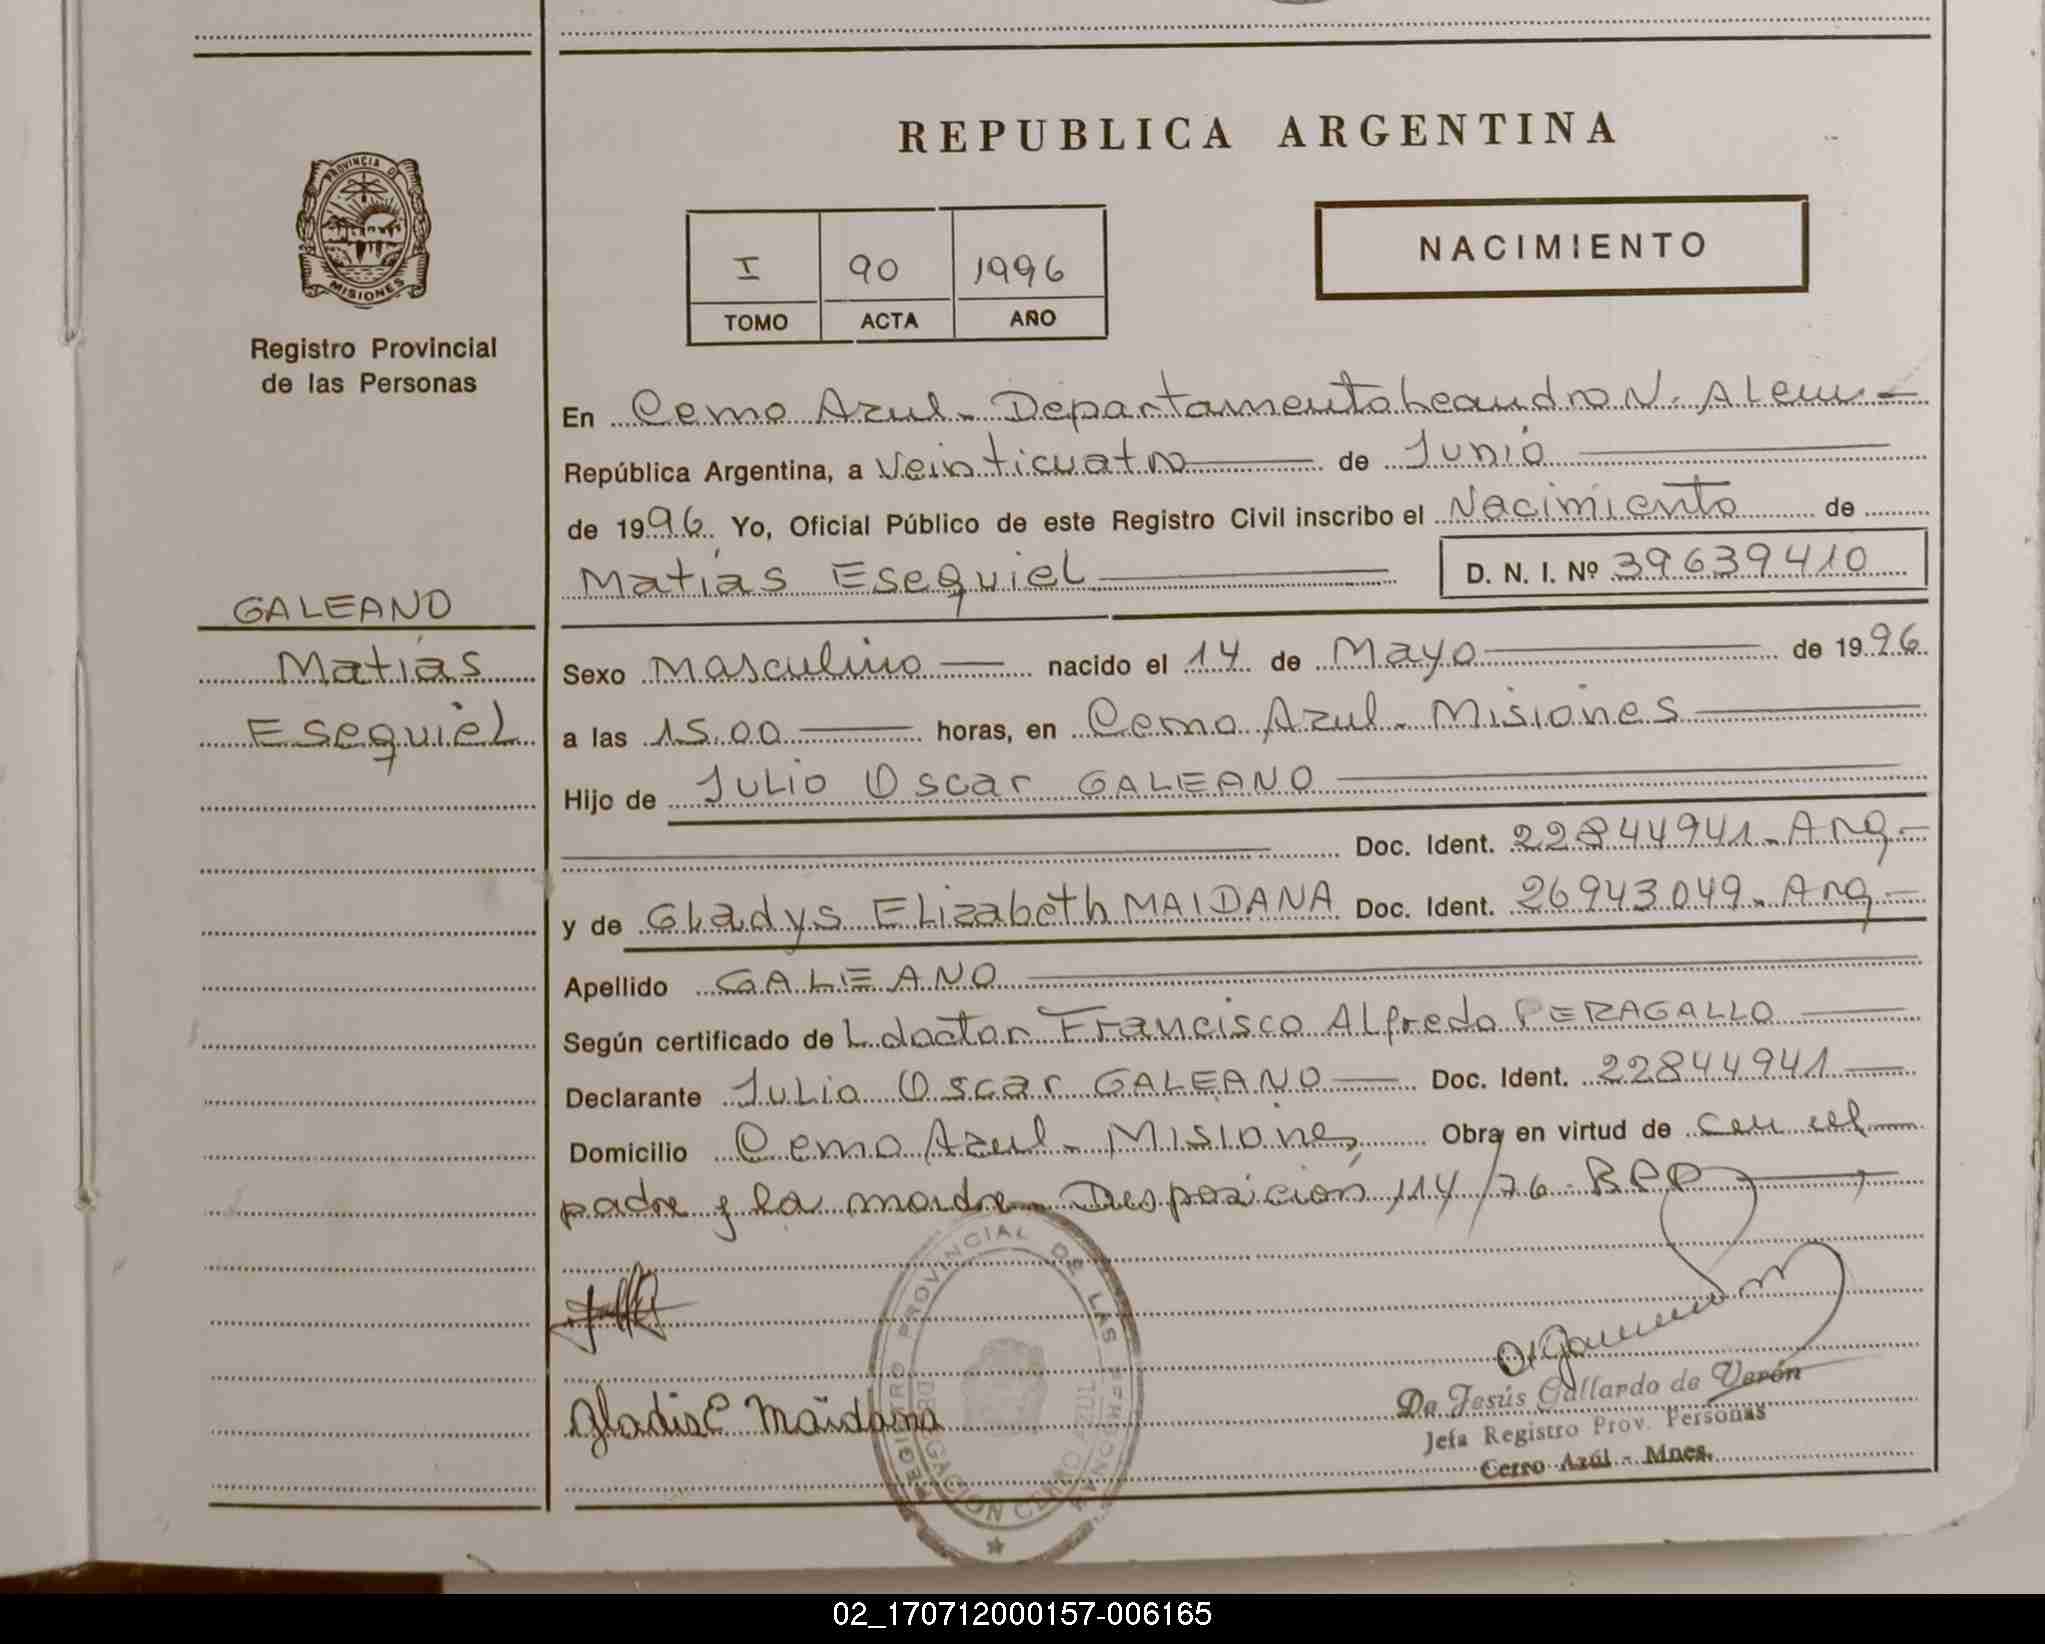 PROVINCIA DE
MISIONES
Registro Provincial
de las Personas
GALEANO
Matías
Esequiel
REPUBLICA ARGENTINA
I 90 1996
TOMO ACTA AÑO
NACIMIENTO
En Cerro Azul - Departamento Leandro N. Alem -
República Argentina, a Veinticuatro de Junio
de 1996. Yo, Oficial Público de este Registro Civil inscribo el Nacimiento de
Matías Esequiel D. N. I. Nº 39639410
Sexo Masculino nacido el 14 de Mayo de 1996
a las 15.00 horas, en Cerro Azul - Misiones
Hijo de Julio Oscar GALEANO
Doc. Ident. 22844941 - Arg -
y de Gladys Elizabeth MAIDANA Doc. Ident. 26943049 - Arg -
Apellido GALEANO
Según certificado de L doctor Francisco Alfredo PERAGALLO
Declarante Julio Oscar GALEANO Doc. Ident. 22844941
Domicilio Cerro Azul - Misiones Obra en virtud de ser el
padre y la madre - Disposición 114/76 - RPP
Gladis E Maidana
REGISTRO PROVINCIAL DE LAS PERSONAS
DELEGACION CERRO AZUL
De Jesús Gallardo de Verón
Jefa Registro Prov. Personas
Cerro Azúl - Mnes.
02_170712000157-006165